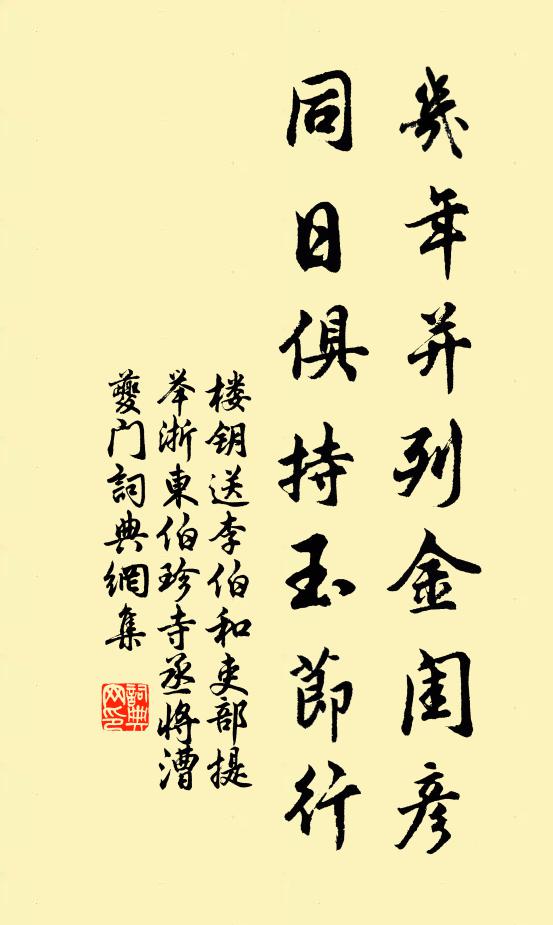 幾年并列金闺彦
同日俱持玉節行
楼钥送李伯和吏部提
举浙東伯珍寺丞將漕
夔门詞典網集
詞典网印